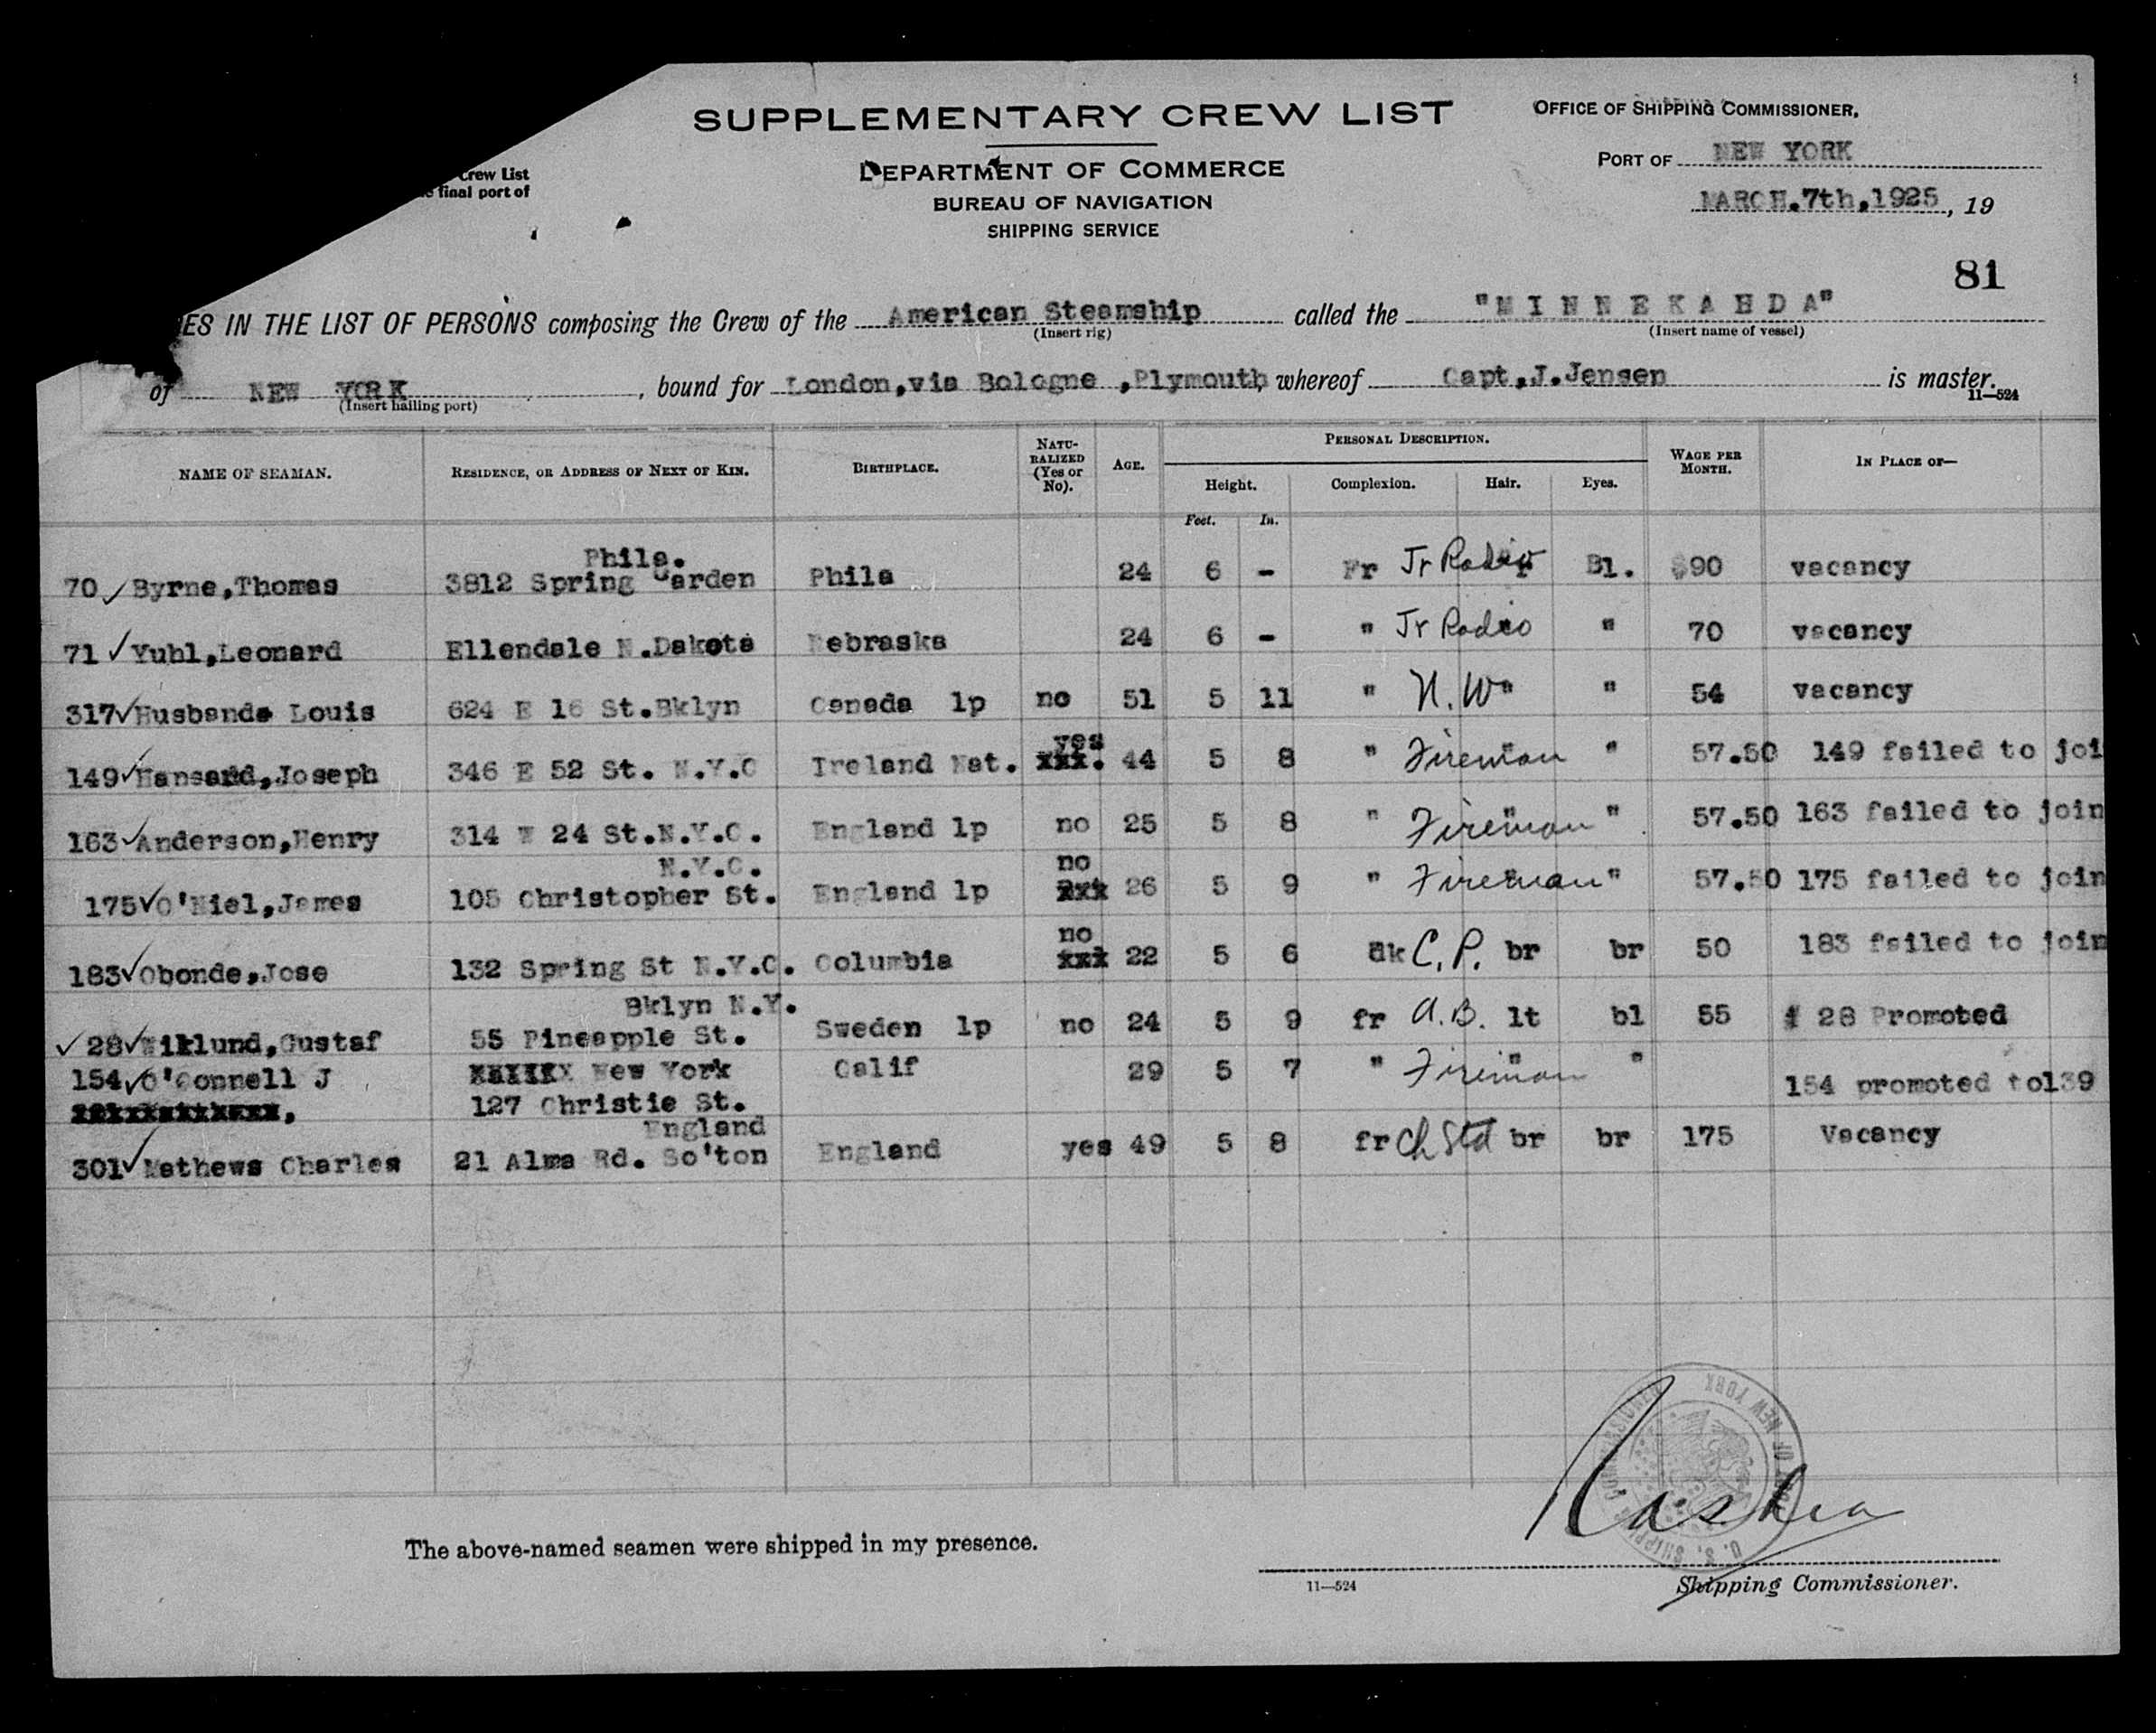 SUPPLEMENTARY CREW LIST
OFFICE OF SHIPPING COMMISSIONER,
Crew List
final port of
DEPARTMENT OF COMMERCE
PORT OF NEW YORK
BUREAU OF NAVIGATION
MARCH.7th,1925, 19
SHIPPING SERVICE
81
ES IN THE LIST OF PERSONS composing the Crew of the American Steamship called the "M I N N E K A H D A"
(Insert rig) (Insert name of vessel)
of NEW YORK, bound for London,via Bologne ,Plymouth, whereof Capt,J.Jensen is master.
(Insert hailing port) 11—524
NAME OF SEAMAN. RESIDENCE, OR ADDRESS OF NEXT OF KIN. BIRTHPLACE. NATURALIZED (Yes or No). AGE. PERSONAL DESCRIPTION. WAGE PER MONTH. IN PLACE OF—
Height. Complexion. Hair. Eyes.
Feet. In.
Phila.
70 ✓ Byrne,Thomas 3812 Spring Garden Phila 24 6 - Fr Jr Radio Bl. $90 vacancy
71 ✓ Yuhl,Leonard Ellendale N.Dakota Nebraska 24 6 - " Jr Radio " 70 vacancy
317 ✓ Husbands Louis 624 E 16 St.Bklyn Canada 1p no 51 5 11 " N.W " " 54 vacancy
yes
149 ✓ Hansard,Joseph 346 E 52 St. N.Y.C Ireland Nat. xxx. 44 5 8 " Fireman " " 57.50 149 failed to joi
163 ✓ Anderson,Henry 314 W 24 St.N.Y.C. England 1p no 25 5 8 " Fireman " " 57.50 163 failed to join
N.Y.C. no
175 ✓ O'Niel,James 105 Christopher St. England 1p xxx 26 5 9 " Fireman " " 57.50 175 failed to join
no
183 ✓ Obonde,Jose 132 Spring St N.Y.C. Columbia xxx 22 5 6 dk C.P. br br 50 183 failed to join
Bklyn N.Y.
✓ 28 ✓ Wiklund,Gustaf 55 Pineapple St. Sweden 1p no 24 5 9 fr A.B. lt bl 55 28 Promoted
154 ✓ O'Connell J New York Calif 29 5 7 " Fireman " " 154 promoted to139
127 Christie St.
England
301 ✓ Mathews Charles 21 Alma Rd. So'ton England yes 49 5 8 fr Ch Std br br 175 Vacancy
The above-named seamen were shipped in my presence.
11—524
Shipping Commissioner.
U. S. SHIPPING COMMISSIONER PORT OF NEW YORK